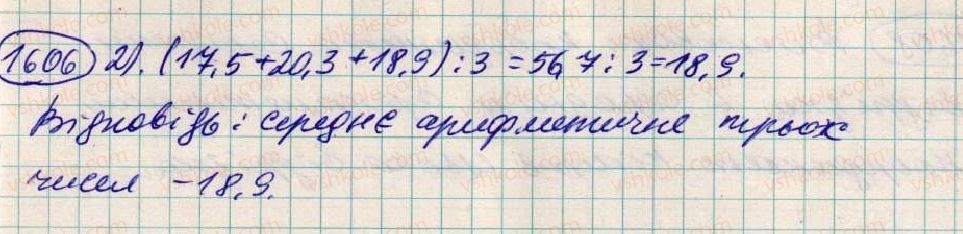 1606 2). (17,5+20,3+18,9) : 3 = 56,7 : 3 = 18,9.
Відповідь : середнє арифметичне трьох
чисел – 18,9.